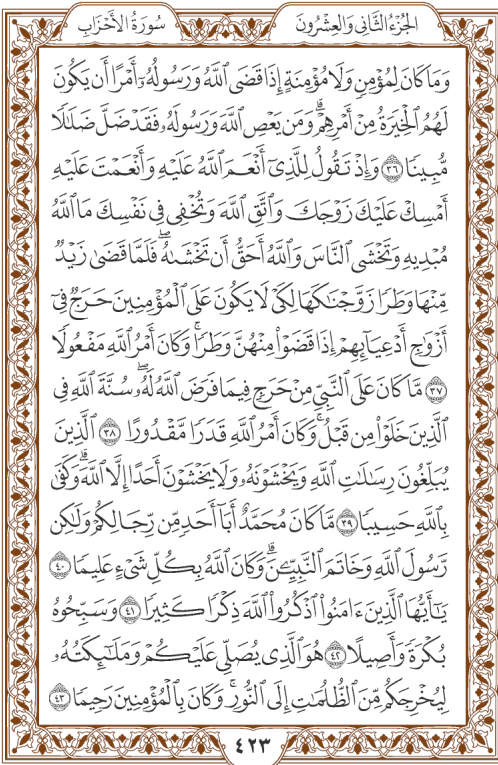 الجُزْءُ الثَّانِي وَالعِشْرُونَ
سُورَةُ الأَحْزَابِ
وَمَا كَانَ لِمُؤْمِنٍ وَلَا مُؤْمِنَةٍ إِذَا قَضَى ٱللَّهُ وَرَسُولُهُۥٓ أَمْرًا أَن يَكُونَ
لَهُمُ ٱلْخِيَرَةُ مِنْ أَمْرِهِمْۗ وَمَن يَعْصِ ٱللَّهَ وَرَسُولَهُۥ فَقَدْ ضَلَّ ضَلَٰلًا
مُّبِينًا ٣٦ وَإِذْ تَقُولُ لِلَّذِىٓ أَنْعَمَ ٱللَّهُ عَلَيْهِ وَأَنْعَمْتَ عَلَيْهِ
أَمْسِكْ عَلَيْكَ زَوْجَكَ وَٱتَّقِ ٱللَّهَ وَتُخْفِى فِى نَفْسِكَ مَا ٱللَّهُ
مُبْدِيهِ وَتَخْشَى ٱلنَّاسَ وَٱللَّهُ أَحَقُّ أَن تَخْشَىٰهُۖ فَلَمَّا قَضَىٰ زَيْدٌ
مِّنْهَا وَطَرًا زَوَّجْنَٰكَهَا لِكَىْ لَا يَكُونَ عَلَى ٱلْمُؤْمِنِينَ حَرَجٌ فِىٓ
أَزْوَٰجِ أَدْعِيَآئِهِمْ إِذَا قَضَوْا۟ مِنْهُنَّ وَطَرًاۚ وَكَانَ أَمْرُ ٱللَّهِ مَفْعُولًا
٣٧ مَّا كَانَ عَلَى ٱلنَّبِىِّ مِنْ حَرَجٍ فِيمَا فَرَضَ ٱللَّهُ لَهُۥۖ سُنَّةَ ٱللَّهِ فِى
ٱلَّذِينَ خَلَوْا۟ مِن قَبْلُۚ وَكَانَ أَمْرُ ٱللَّهِ قَدَرًا مَّقْدُورًا ٣٨ ٱلَّذِينَ
يُبَلِّغُونَ رِسَٰلَٰتِ ٱللَّهِ وَيَخْشَوْنَهُۥ وَلَا يَخْشَوْنَ أَحَدًا إِلَّا ٱللَّهَۗ وَكَفَىٰ
بِٱللَّهِ حَسِيبًا ٣٩ مَّا كَانَ مُحَمَّدٌ أَبَآ أَحَدٍ مِّن رِّجَالِكُمْ وَلَٰكِن
رَّسُولَ ٱللَّهِ وَخَاتَمَ ٱلنَّبِيِّۦنَۗ وَكَانَ ٱللَّهُ بِكُلِّ شَىْءٍ عَلِيمًا ٤٠
يَٰٓأَيُّهَا ٱلَّذِينَ ءَامَنُوا۟ ٱذْكُرُوا۟ ٱللَّهَ ذِكْرًا كَثِيرًا ٤١ وَسَبِّحُوهُ
بُكْرَةً وَأَصِيلًا ٤٢ هُوَ ٱلَّذِى يُصَلِّى عَلَيْكُمْ وَمَلَٰٓئِكَتُهُۥ
لِيُخْرِجَكُم مِّنَ ٱلظُّلُمَٰتِ إِلَى ٱلنُّورِۚ وَكَانَ بِٱلْمُؤْمِنِينَ رَحِيمًا ٤٣
٤٢٣